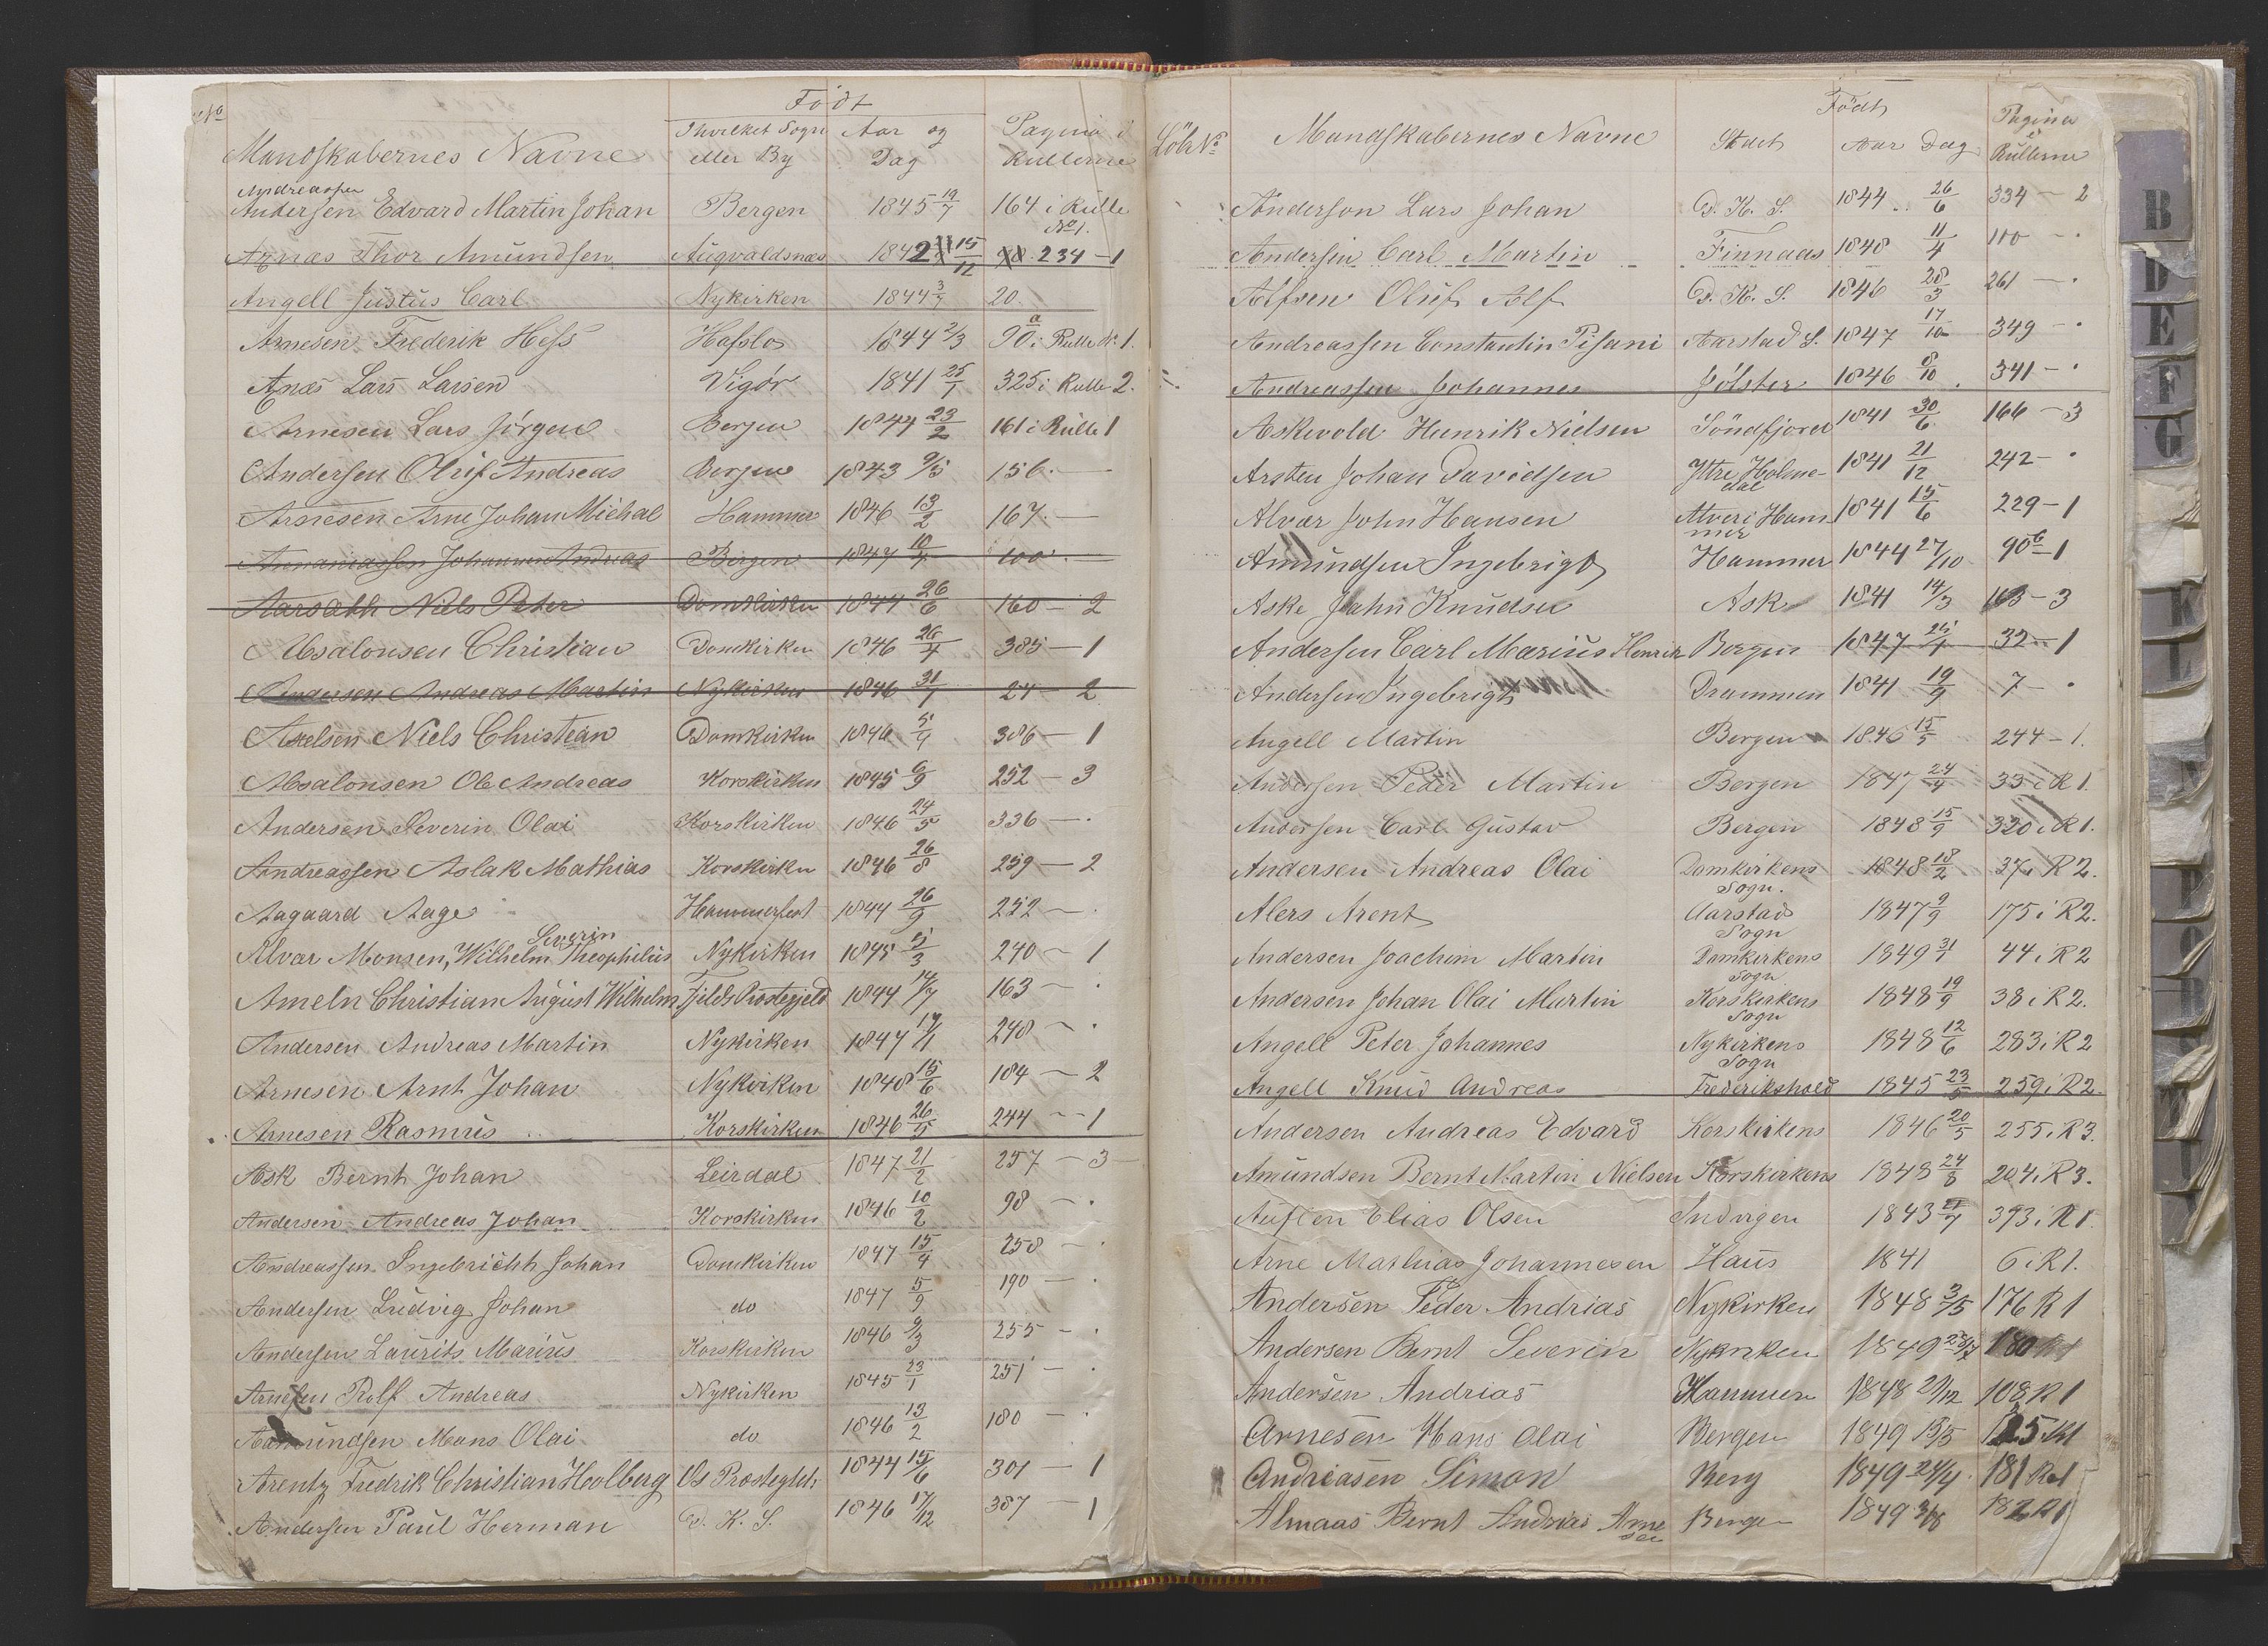 No
Født
Mandskabernes Navne I hvilket Sogn eller By Aar og Dag Pagina i Rullerne
Andreassen
Andersen Edvard Martin Johan Bergen 1845 19/7 164 i Rulle No 1.
Thor Amundsen Augvaldsnæs 1842 15/12 234 - 1
Angell Justus Carl Nykirken 1844 3/7 20.
Arnesen Frederik Hess Hafslo 1844 2/3 90 a i Rulle No 1.
Lars Larsen Vigör 1841 25/1 325 i Rulle 2.
Arnesen Lars Jørgen Bergen 1844 23/2 161 i Rulle 1
Andersen Oluf Andreas Bergen 1843 9/5 156. —
Arnesen Arne Johan Michal Hammer 1846 13/2 167. —
Johannes Andreas Bergen 1847 10/4 100. —
Aarsæth Niels Peter Domkirken 1844 26/6 160 - 2
Absalonsen Christian Domkirken 1846 26/4 385 - 1
Andersen Andreas Martin Nykirken 1846 31/7 24 - 2
Axelsen Niels Christian Domkirken 1846 5/4 386 - 1
Absalonsen Ole Andreas Korskirken 1845 6/9 252 - 3
Andersen Severin Olai Korskirken 1846 24/5 336 - .
Andreassen Aslak Mathias Korskirken 1846 26/8 259 - 2
Aagaard Aage Hammerfest 1844 26/9 252 - .
Severin
Alvær Monsen, Wilhelm Theophilus Nykirken 1845 5/3 240 - 1
Ameln Christian August Wilhelm Fjelds Præstegjeld 1844 14/7 163 - .
Andersen Andreas Martin Nykirken 1847 17/1 248 - .
Arnesen Arnt Johan Nykirken 1848 15/6 184 - 2
Arnesen Rasmus Korskirken 1846 26/5 244 - 1
Ask Bernt Johan Leirdal 1847 21/2 257 - 3
Andersen Andreas Johan Korskirken 1846 10/2 98 - .
Andreassen Ingebricht Johan Domkirken 1847 15/4 258 - .
Andersen Ludvig Johan do 1847 5/9 190 - .
Andersen Laurits Marius Korskirken 1846 9/3 255 - .
Arnesen Rolf Andreas Nykirken 1845 23/1 251 - .
Aamundsen Mons Olai do 1846 13/2 180 - .
Arentz Fredrik Christian Holberg Os Præstegjeld 1844 15/6 301 - 1
Andersen Paul Herman D. K. S. 1846 17/12 387 - 1
Löb No
Født
Mandskabernes Navne Stedet Aar Dag Pagina i Rullerne
Anderson Lars Johan D. K. S. 1844 26/6 334 - 2
Andersen Carl Martin Finnaas 1848 11/4 110 - .
Alfsen Oluf Alf D. K. S. 1846 28/3 261 - .
Andreassen Constantin Pisani Aarstad S. 1847 17/10 349 - .
Andreassen Johannes Jölster 1846 8/10 341 - .
Askevold Henrik Nielsen Söndfjord 1841 30/6 166 - 3
Arsten Johan Davidsen Yttre Holmedal 1841 21/12 242 - .
Alvær John Hansen Alveri Hammer 1841 15/6 229 - 1
Amundsen Ingebrigt Hammer 1844 27/10 90 b - 1
Aske John Knudsen Ask 1841 14/3 163 - 3
Andersen Carl Marius Henrik Bergen 1847 25/4 32 - 1
Andersen Ingebrigt Drammen 1841 19/9 7 - .
Angell Martin Bergen 1846 15/5 244 - 1.
Andersen Peder Martin Bergen 1847 24/4 33 i R 1.
Andersen Carl Gustav Bergen 1848 15/9 320 i R 1.
Andersen Andreas Olai Domkirkens Sogn. 1848 18/2 37 i R 2.
Alers Arent Aarstad Sogn 1847 9/9 175 i R 2.
Andersen Joachim Martin Domkirkens Sogn 1849 31/1 44 i R 2
Andersen Johan Olai Martin Korskirkens Sogn 1848 19/9 38 i R 2.
Angell Peter Johannes Nykirkens Sogn 1848 12/6 283 i R 2
Angell Knud Andreas Frederikshald 1845 23/5 259 i R 2.
Andersen Andreas Edvard Korskirkens 1846 20/5 255 i R 3.
Amundsen Bernt Martin Nielsen Korskirkens 1848 24/8 204 i R 3.
Auflen Elias Olsen Indvigen 1843 21/7 393 i R 1.
Arne Mathias Johannesen Haus 1841 6 i R 1.
Andersen Peder Andrias Nykirken 1848 3/5 176 R 1
Andersen Bernt Severin Nykirken 1849 180 R 1
Andersen Andrias Hammer 1848 21/12 108 R 1
Arnesen Hans Olai Bergen 1849 15/5 125 R 1
Andreasen Simon Berg 1849 24/4 181 R 1
Almaas Bernt Andrias Arnesen Bergen 1849 3/8 182 R 1
B
D
E
F
G
K
L
N
P
R
T